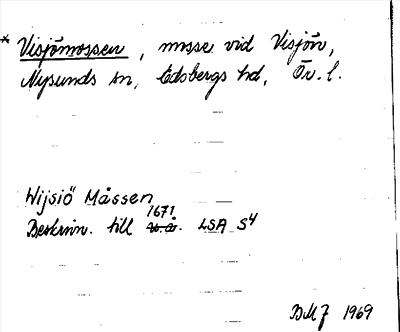 * Visjömossen, mosse vid Visjön,
Nysunds sn, Edsbergs hd, Ör. l.
Wijsiö Måssen
1671
Beskrivn. till u. å. LSA S4
BMJ 1969